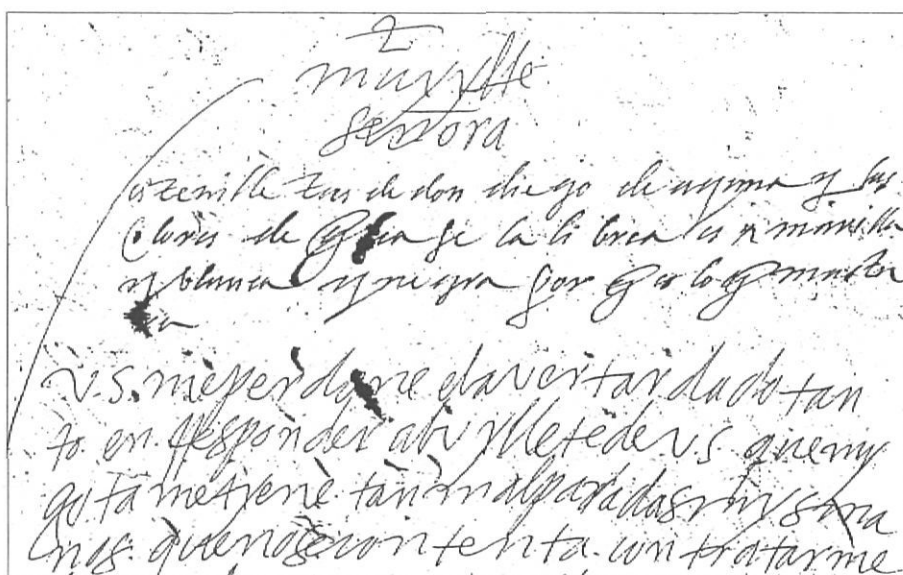 muy ylle
señora
este villete es de don diego de acuña y las
colores de que a de la librea es amarilla
y blanca y negra por que es lo que
v.s. me perdone el aver tardado tan
to en rresponder al vyllete de v.s. que my
gota me tiene tan mal paradas mys ma
nos. que no se contenta. con tratarme